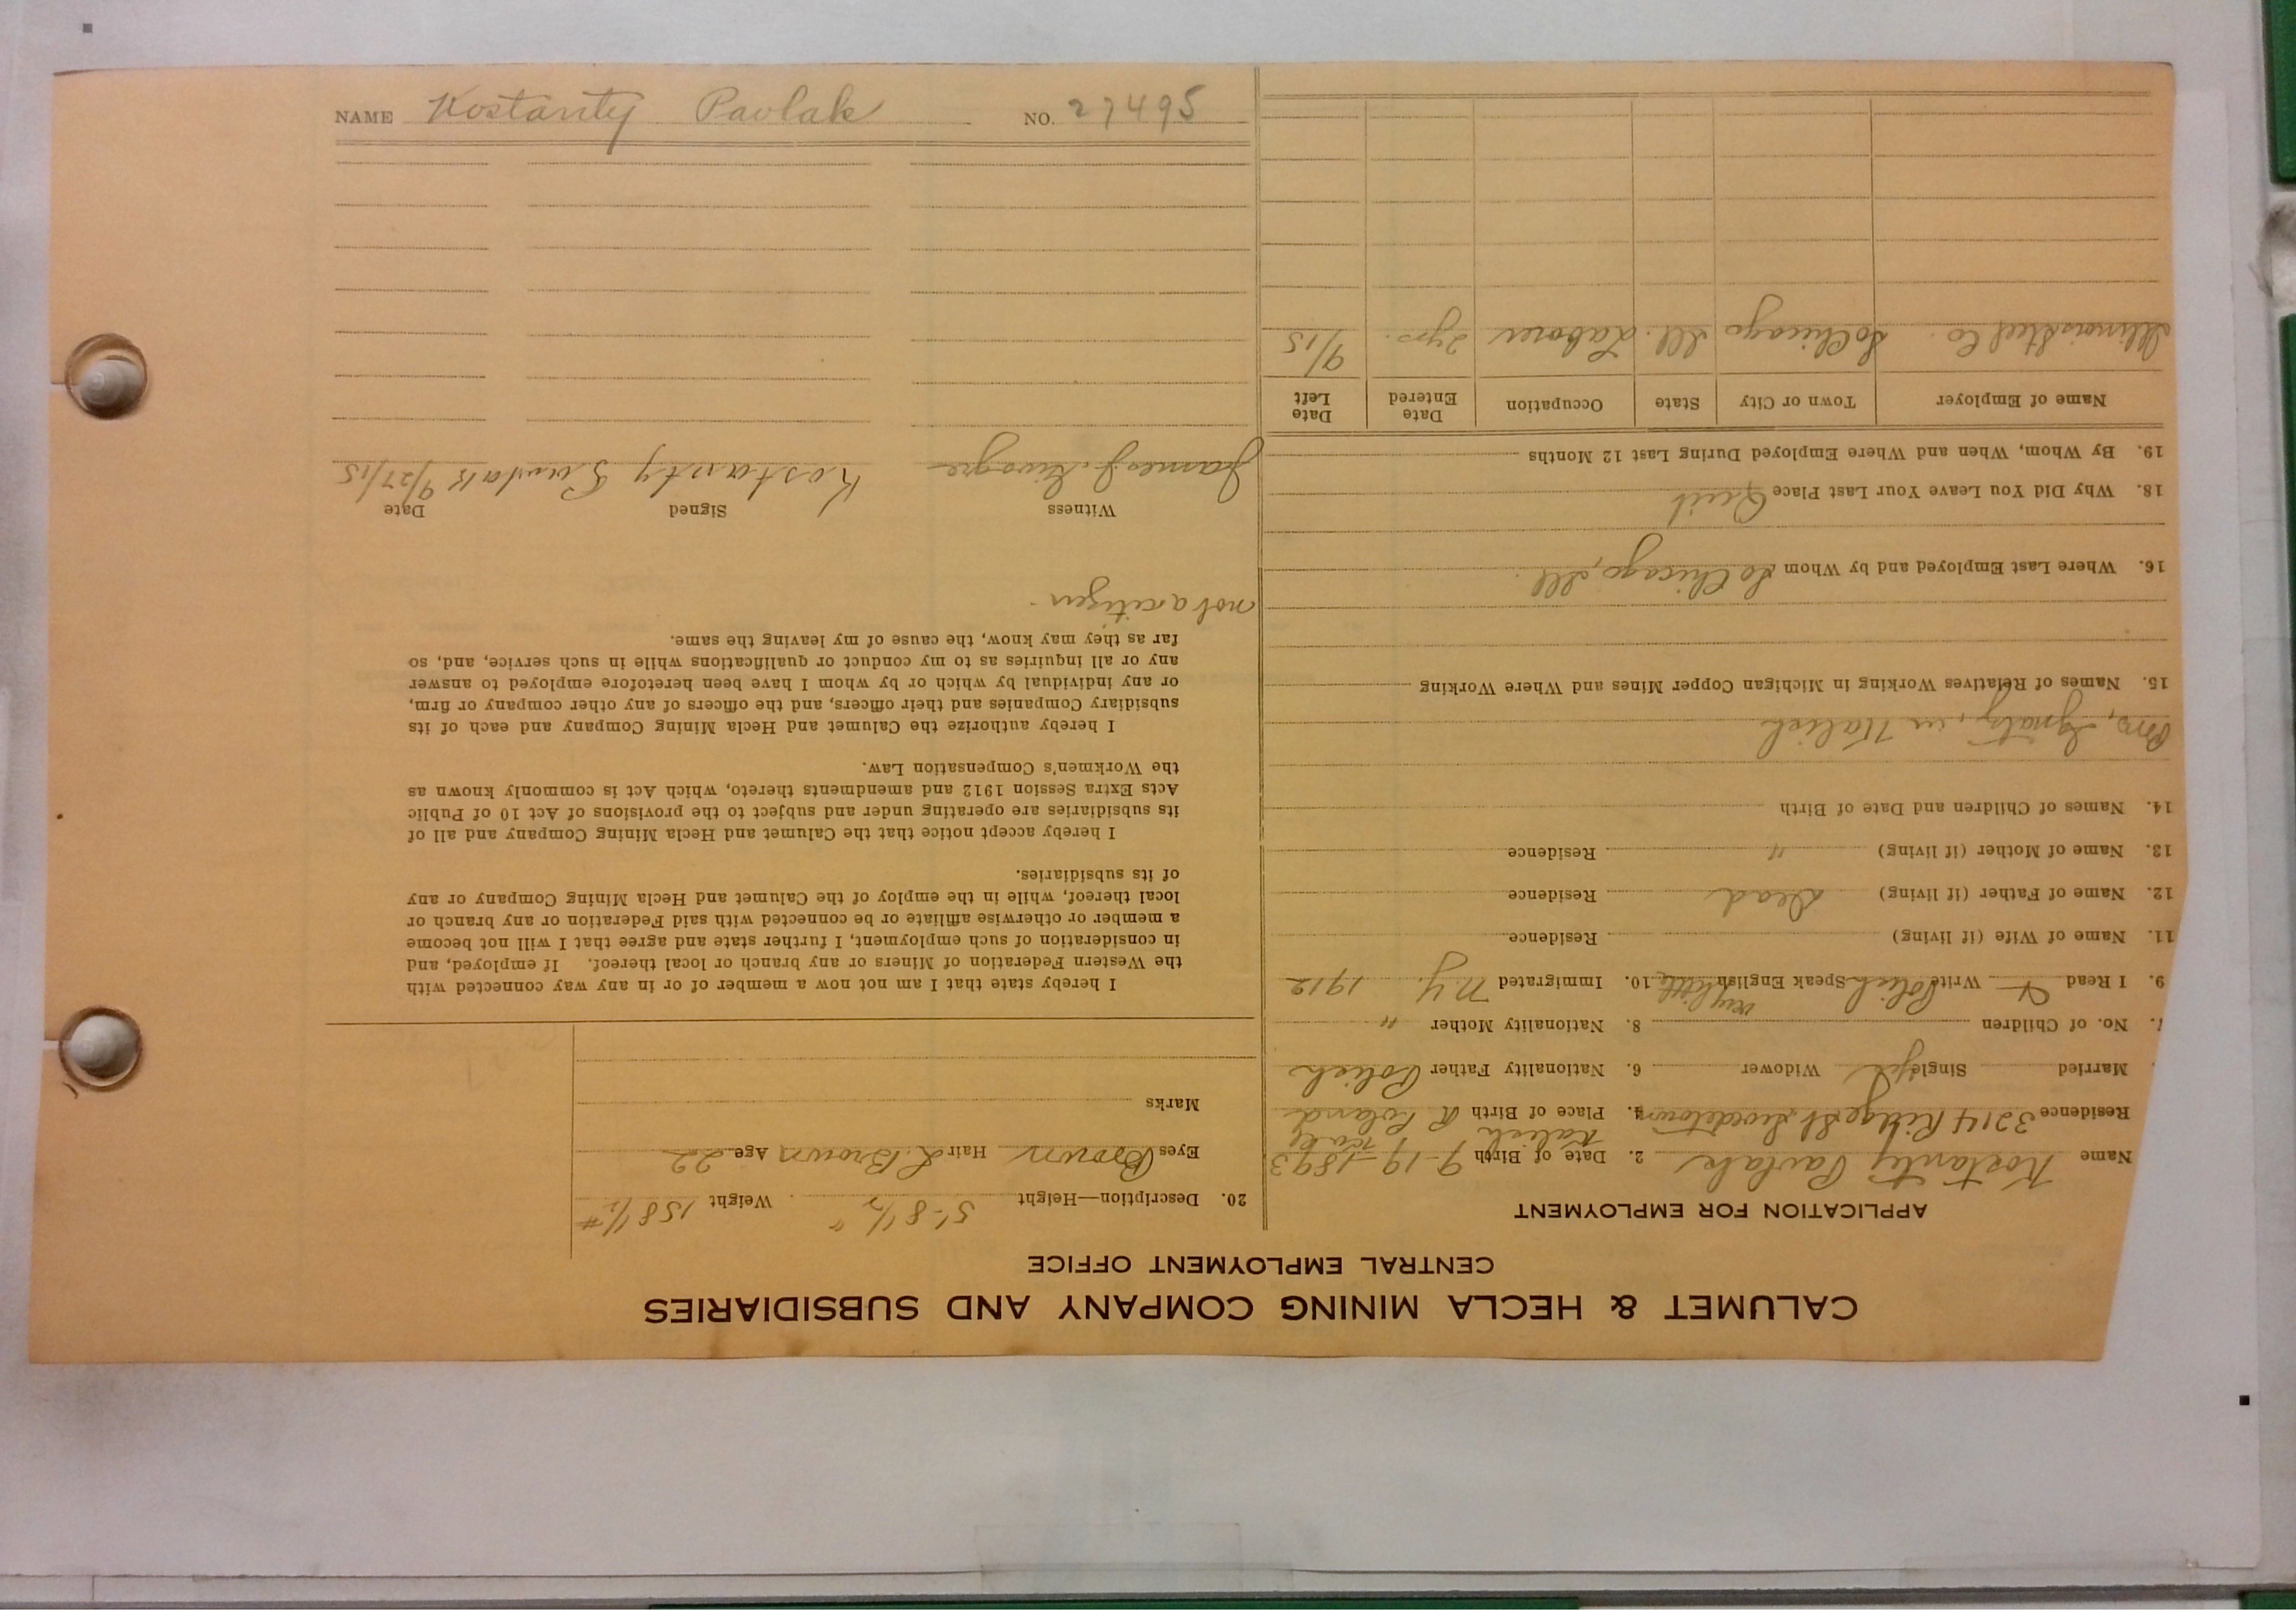 NAME Kostanty Pavlak NO. 27495
CALUMET & HECLA MINING COMPANY AND SUBSIDIARIES
CENTRAL EMPLOYMENT OFFICE
APPLICATION FOR EMPLOYMENT
Name Kostanty Pavlak 2. Date of Birth 9-19-1893
Residence 3214 Ridge St Swedetown 4. Place of Birth Kalish R Poland
Married Single Widower 6. Nationality Father Polish
7. No. of Children 8. Nationality Mother "
9. I Read Write Polish Speak English very little 10. Immigrated N.Y. 1912
11. Name of Wife (if living) Residence
12. Name of Father (if living) Dead Residence
13. Name of Mother (if living) " Residence
14. Names of Children and Date of Birth
Bro, Ignatz, in Kalish
15. Names of Relatives Working in Michigan Copper Mines and Where Working
16. Where Last Employed and by Whom So Chicago, Ill.
18. Why Did You Leave Your Last Place Quit
19. By Whom, When and Where Employed During Last 12 Months
Name of Employer Town or City State Occupation Date Entered Date Left
Illinois Steel Co. So Chicago Ill. Laborer 2 yrs. 9/15
20. Description—Height 5'-8 1/2" Weight 158 1/2 #
Eyes Brown Hair L. Brown Age 22
Marks
I hereby state that I am not now a member of or in any way connected with
the Western Federation of Miners or any branch or local thereof. If employed, and
in consideration of such employment, I further state and agree that I will not become
a member or otherwise affiliate or be connected with said Federation or any branch or
local thereof, while in the employ of the Calumet and Hecla Mining Company or any
of its subsidiaries.
I hereby accept notice that the Calumet and Hecla Mining Company and all of
its subsidiaries are operating under and subject to the provisions of Act 10 of Public
Acts Extra Session 1912 and amendments thereto, which Act is commonly known as
the Workmen's Compensation Law.
I hereby authorize the Calumet and Hecla Mining Company and each of its
subsidiary Companies and their officers, and the officers of any other company or firm,
or any individual by which or by whom I have been heretofore employed to answer
any or all inquiries as to my conduct or qualifications while in such service, and, so
far as they may know, the cause of my leaving the same.
not a citizen
Witness Signed Date
James J. Kostanty Pawlak 9/27/15